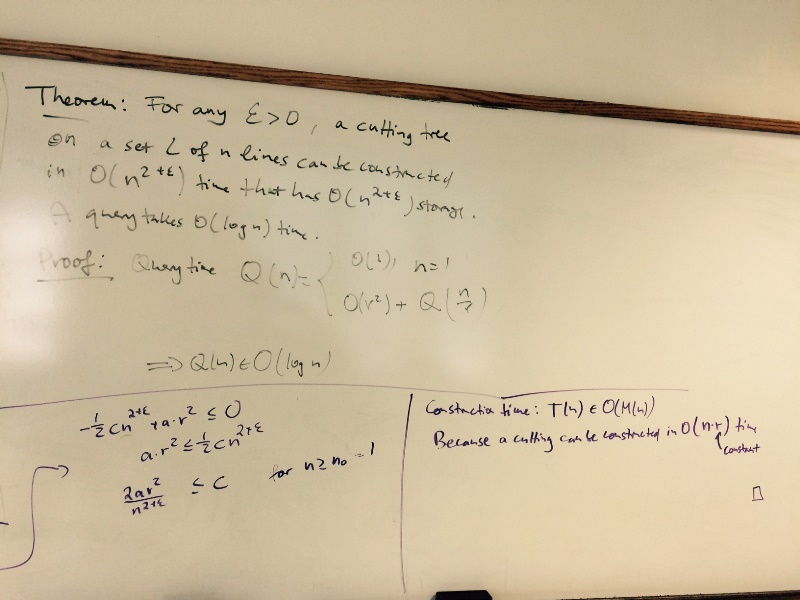 Theorem: For any ε>0, a cutting tree
on a set L of n lines can be constructed
in O(n^{2+ε}) time that has O(n^{2+ε}) storage.
A query takes O(log n) time.
Proof: Query time Q(n)= { O(1), n=1
O(r²) + Q(n/r)
⟹ Q(n) ∈ O(log n)
-1/2 cn^{2+ε} + a·r² ≤ 0
a·r² ≤ 1/2 cn^{2+ε}
2ar²/n^{2+ε} ≤ c for n ≥ n₀ = 1
Construction time: T(n) ∈ O(M(n))
Because a cutting can be constructed in O(n·r) time
constant